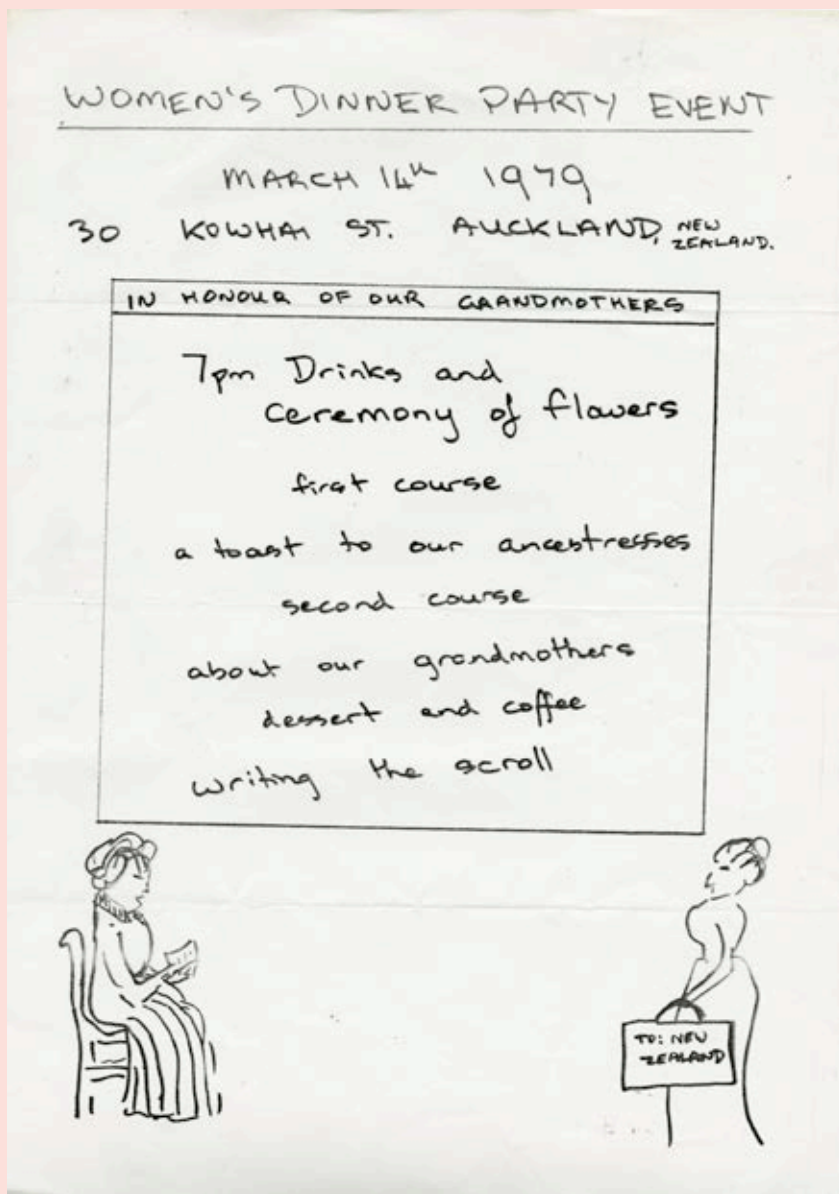 WOMEN'S DINNER PARTY EVENT
MARCH 14th 1979
30 KOWHAI ST. AUCKLAND, NEW
ZEALAND.
IN HONOUR OF OUR GRANDMOTHERS
7pm Drinks and
Ceremony of flowers
first course
a toast to our ancestresses
second course
about our grandmothers
dessert and coffee
writing the scroll
TO: NEW
ZEALAND